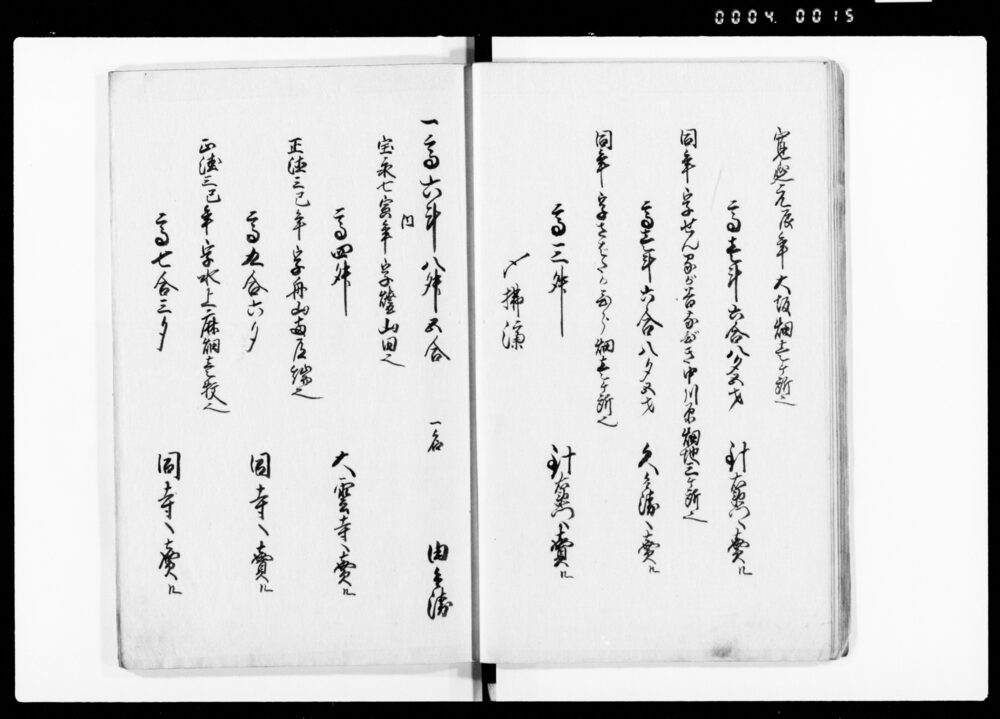 0004 0015
寛延元辰年 大坂畑壱ヶ所之
高壱斗六合八夕五才 針右衛門へ賣ル
同年字せん 中川原畑地三ヶ所之
高壱斗六合八夕五才 久兵衛へ賣ル
同年字 畑壱ヶ所之
高三舛 針右衛門へ賣ル
〆拂済
一高六斗八舛五合 一名 由兵衛
内
宝永七寅年字 山田之
高四舛 大雲寺へ賣ル
正徳三巳年字舟山
高五合六夕 同寺へ賣ル
正徳三巳年字水上麻畑壱枚之
高七合三夕 同寺へ賣ル